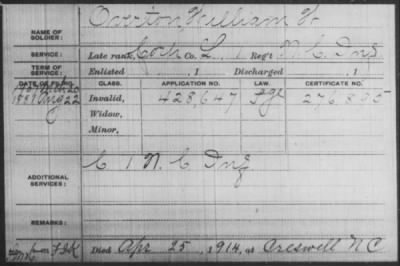 NAME OF SOLDIER: William
SERVICE: Late rank, Co. L, 1 Reg't N. C. Inf.
TERM OF SERVICE: Enlisted , 1 Discharged , 1
DATE OF FILING. CLASS. APPLICATION NO. LAW. CERTIFICATE NO.
Invalid, 428,647
Aug 22 Widow,
Minor,
ADDITIONAL SERVICES: C 1 N. C Inf.
REMARKS:
Died Apr 25, 1914, at Creswell N C